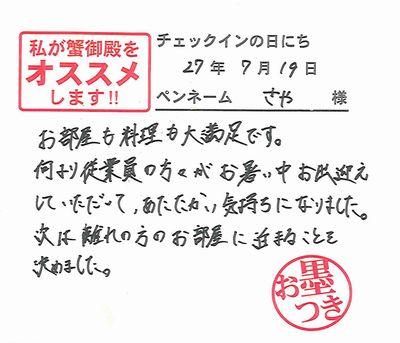 私が蟹御殿を
オススメ
します!!
チェックインの日にち
27年7月19日
ペンネーム さや 様
お部屋も料理も大満足です。
何より従業員の方々がお暑い中お出迎え
していただいて、あたたかい気持ちになりました。
次は離れの方のお部屋に泊まることを
決めました。
お墨つき